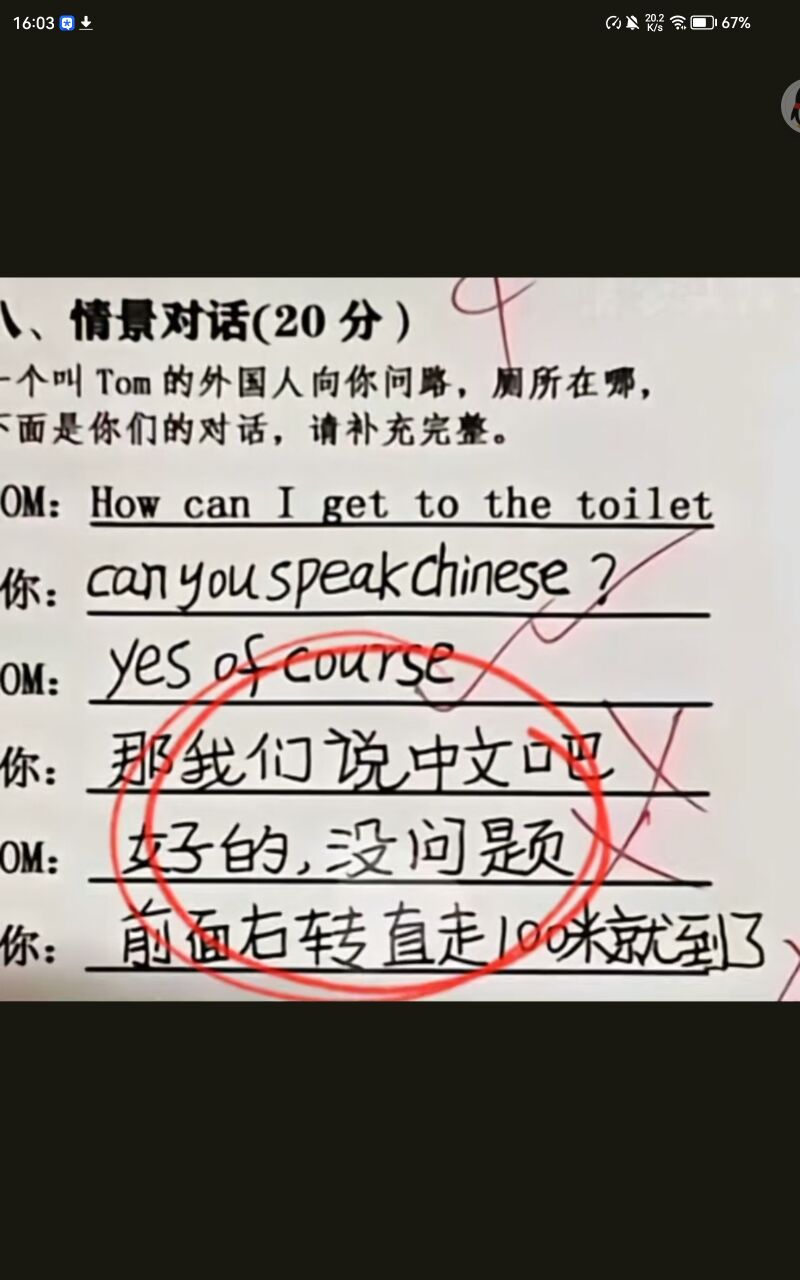 16:03
20.2
K/s
67%
八、情景对话(20 分)
一个叫 Tom 的外国人向你问路，厕所在哪，
下面是你们的对话，请补充完整。
OM: How can I get to the toilet
你: can you speak chinese ?
OM: yes of course
你: 那我们说中文吧
OM: 好的,没问题
你: 前面右转直走100米就到了